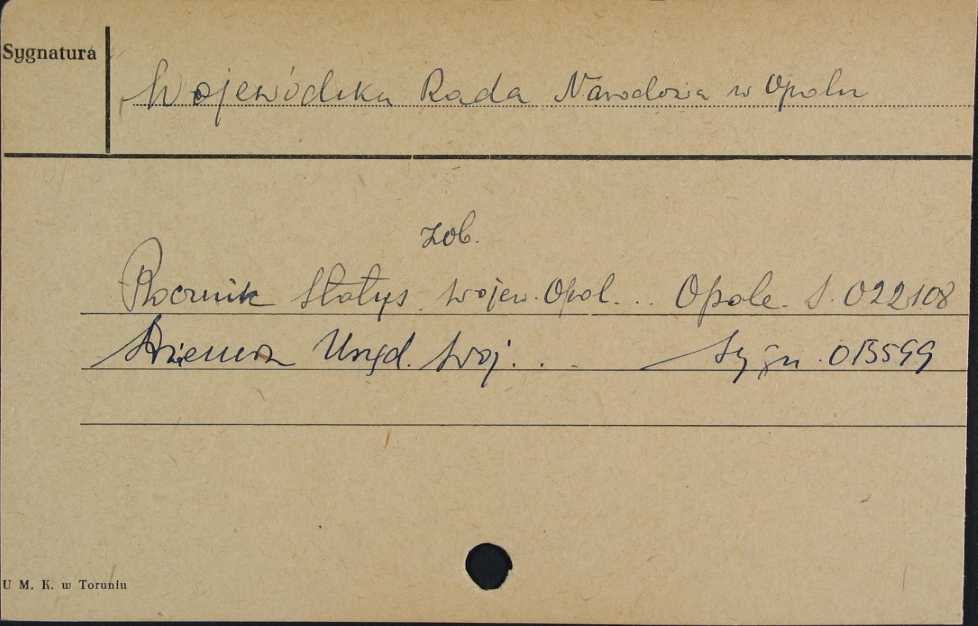 Sygnatura
Wojewódzka Rada Narodowa w Opolu
zob.
Rocznik Statys. wojew. Opol. .. Opole. S. 022108
Dzienn Urzęd. Woj. . . Sygn. 013599
U M. K. w Toruniu